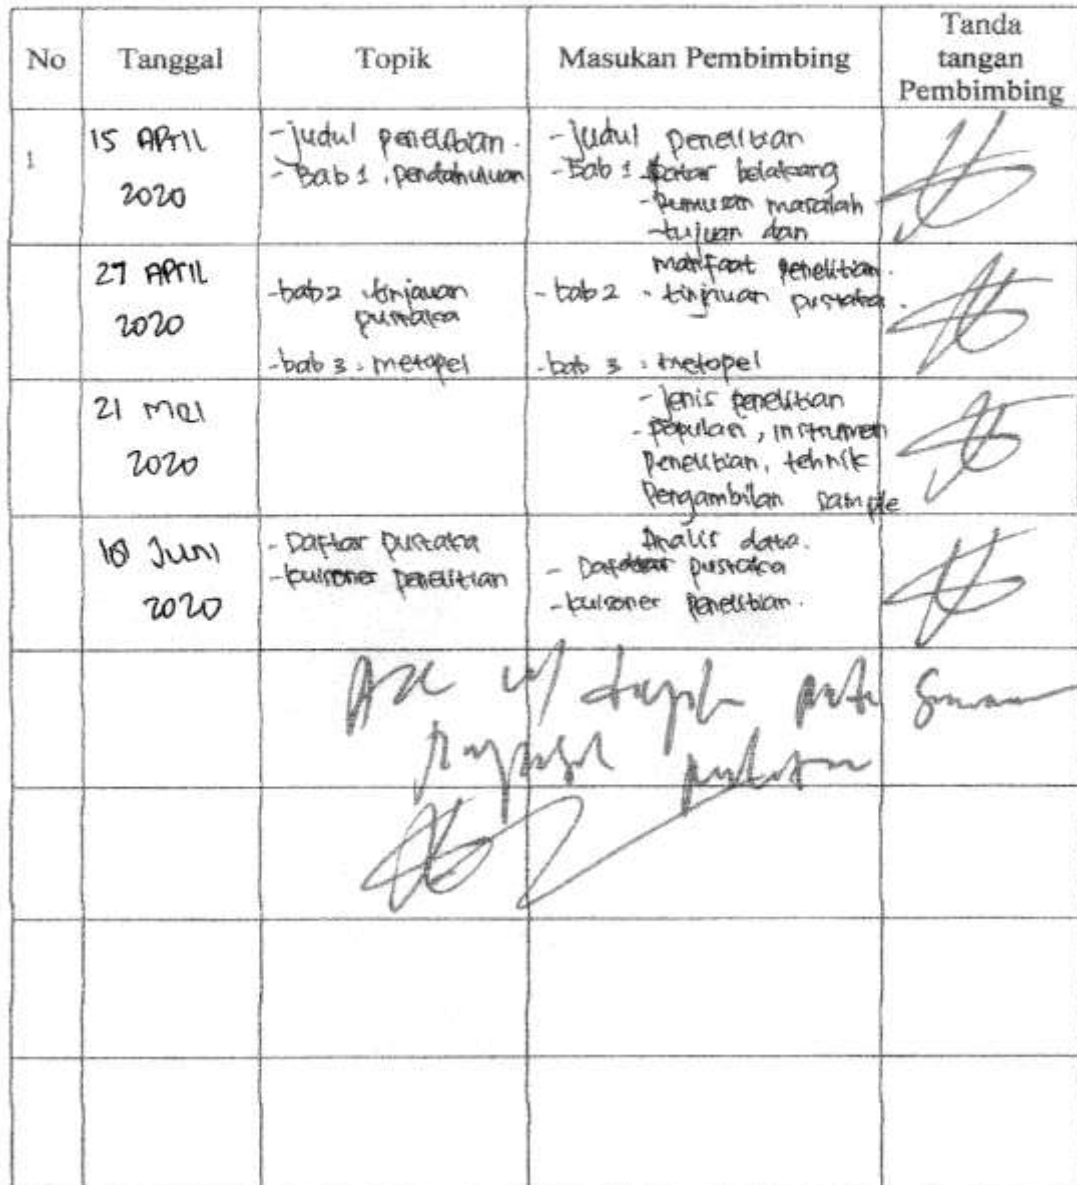 No Tanggal Topik Masukan Pembimbing Tanda tangan Pembimbing
1 15 APRIL 2020
- judul penelitian.
- Bab 1 . pendahuluan
- judul penelitian
- Bab 1 latar belakang
- Rumusan masalah
- tujuan dan
manfaat penelitian.
27 APRIL 2020
- bab 2 . tinjauan
pustaka
- bab 3 : metopel
- bab 2 . tinjauan pustaka.
- bab 3 : metopel
21 Mei 2020
- Jenis penelitian
- populasi, instrumen
Penelitian, tehnik
Pengambilan sample
Analis data.
Juni 2020
- Daftar pustaka
- kuisoner penelitian
- pustaka
- kuisoner penelitian.